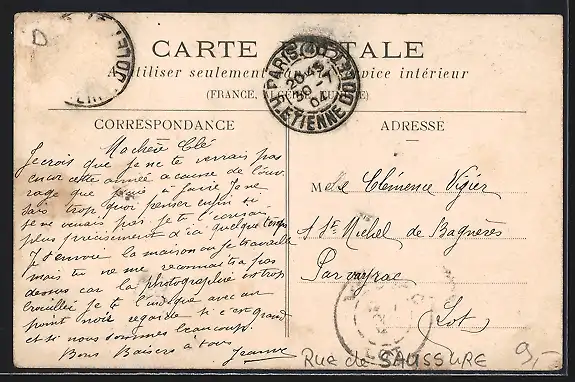 D
CARTE POSTALE
A utiliser seulement dans le service intérieur
(FRANCE, ALGÉRIE
PARIS
20 45
30 -7
04
R. ETIENNE DOLET
CORRESPONDANCE
ADRESSE
Ma chère Clé
Je crois que je ne te verrais pas
encor cette année a cause de l'ouv
rage que j'aie à faire Je ne
sais trop quoi penser enfin si
je ne venais pas je te l'ecrirai
plus précisement d'ici quelque temps
Je t'envoie la maison ou je travaille
mais tu ne me reconnaitra pas
dessus car la photographie est trop
brouillée je te l'indique avec un
point noir regarde si c'est grand
et si nous sommes beaucoup.
Bons Baisers à tous
Jeanne
Melle Clémence Vigier
à St Michel de Bagnères
Par vayrac
Lot
Rue de SAUSSURE
9,-